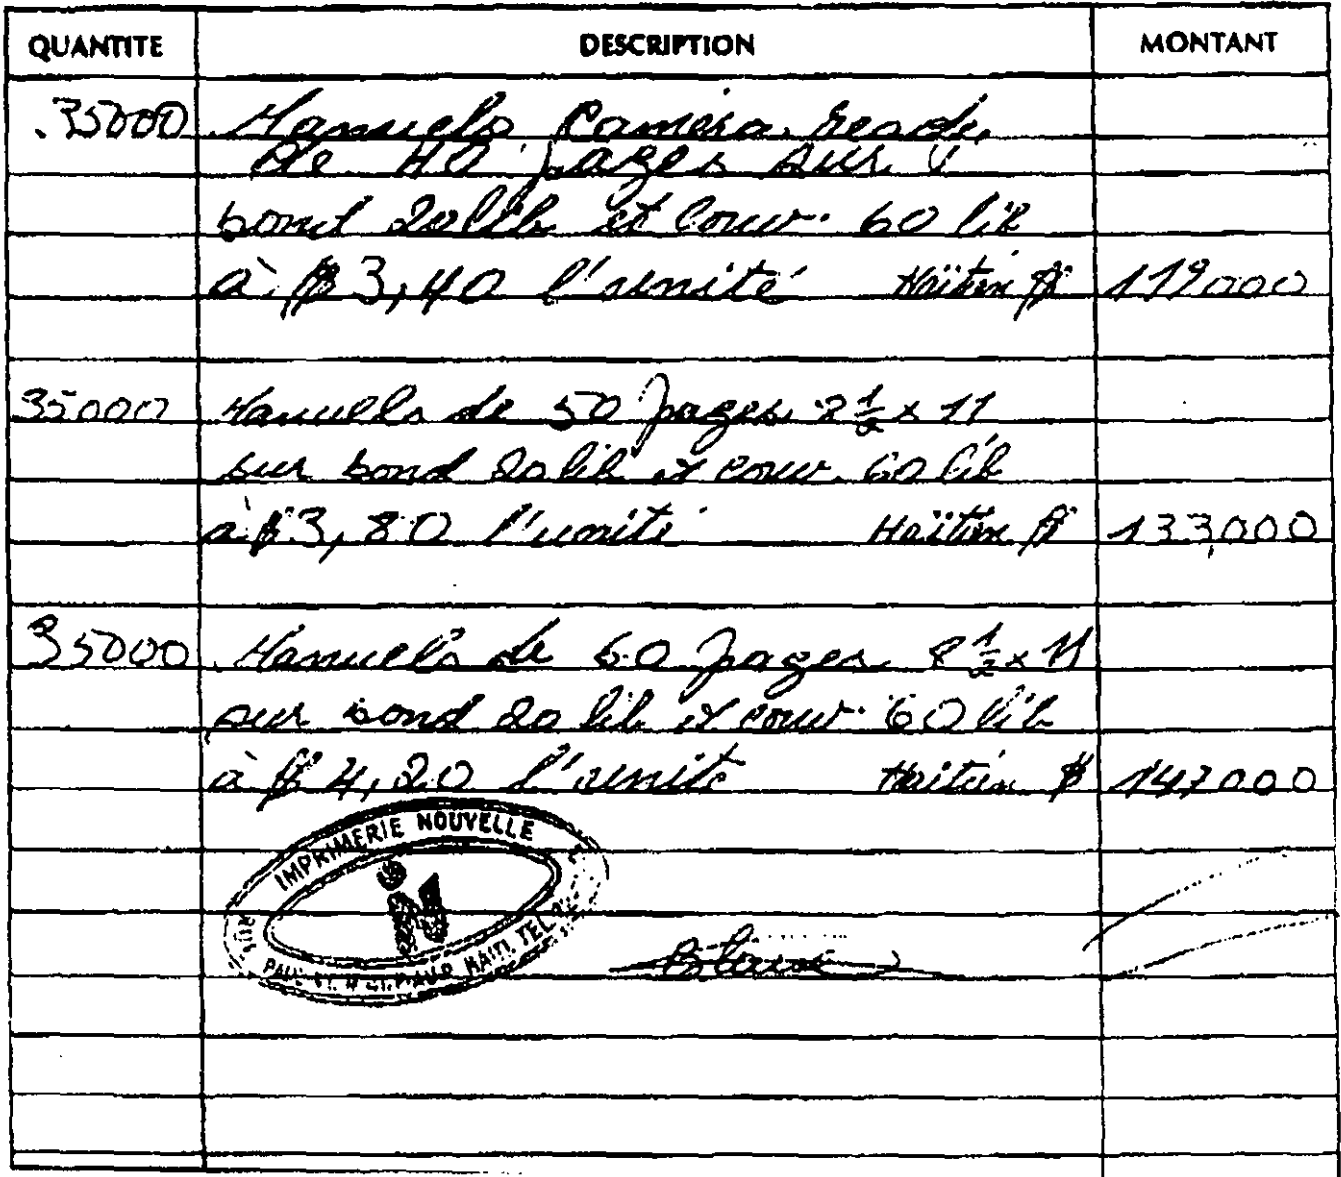 QUANTITE DESCRIPTION MONTANT
35000 Manuels Camera Ready
de 40 pages sur
bond 20 lib et couv. 60 lib
à $ 3,40 l'unité Haïtien $ 119000
35000 Manuels de 50 pages 8 1/2 x 11
sur bond 20 lib et couv. 60 lib
à $ 3,80 l'unité Haïtien $ 133,000
35000 Manuels de 60 pages 8 1/2 x 11
sur bond 20 lib et couv. 60 lib
à $ 4,20 l'unité Haitien $ 147000
IMPRIMERIE NOUVELLE
HAITI, TEL